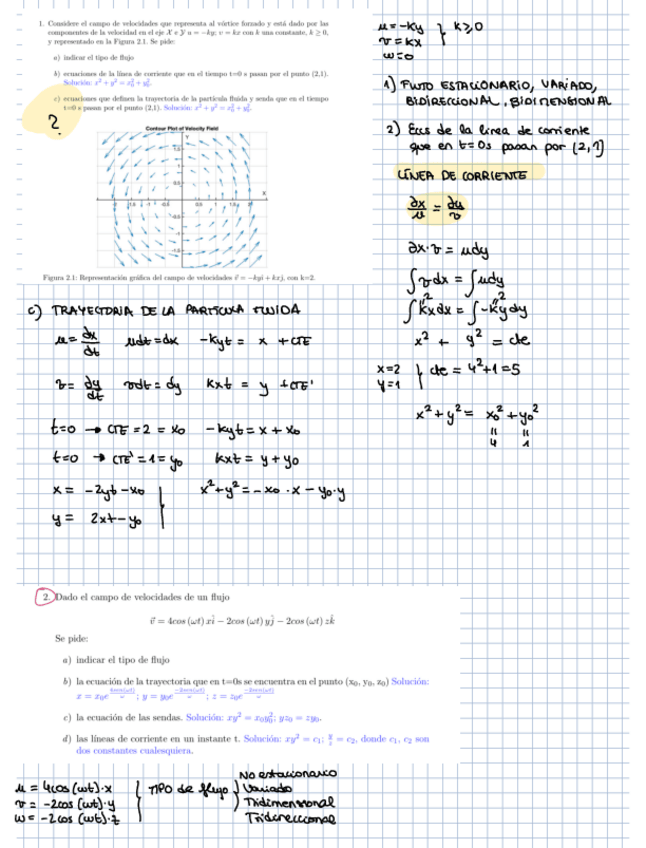 1. Considere el campo de velocidades que representa al vórtice forzado y está dado por las
componentes de la velocidad en el eje X e Y u = −ky; v = kx con k una constante, k ≥ 0,
y representado en la Figura 2.1. Se pide:
a) indicar el tipo de flujo
b) ecuaciones de la línea de corriente que en el tiempo t=0 s pasan por el punto (2,1).
Solución: x² + y² = x₀² + y₀².
c) ecuaciones que definen la trayectoria de la partícula fluida y senda que en el tiempo
t=0 s pasan por el punto (2,1). Solución: x² + y² = x₀² + y₀².
?
Contour Plot of Velocity Field
Y
X
Figura 2.1: Representación gráfica del campo de velocidades v⃗ = −kyi + kxj, con k=2.
u = -ky } k ≥ 0
v = kx
w = 0
1) FLUJO ESTACIONARIO, VARIADO,
BIDIRECCIONAL, BIDIMENSIONAL
2) Ecus de la linea de corriente
que en t=0s pasan por (2,1)
LÍNEA DE CORRIENTE
∂x/u = ∂y/v
∂x·v = udy
∫vdx = ∫udy
∫kxdx = ∫-kydy
x² + y² = cte
x=2
y=1 } cte = 4²+1 = 5
x²+y² = x₀²+y₀²
4 1
c) TRAYECTORIA DE LA PARTICULA FLUIDA
u = dx/dt udt = dx -kyt = x + CTE
v = dy/dt vdt = dy kxt = y + CTE'
t=0 → CTE = 2 = x₀ -kyt = x + x₀
t=0 → CTE' = 1 = y₀ kxt = y + y₀
x = -2yt - x₀ x²+y² = -x₀·x - y₀·y
y = 2xt - y₀
2. Dado el campo de velocidades de un flujo
v⃗ = 4cos (ωt) xî − 2cos (ωt) yĵ − 2cos (ωt) zk̂
Se pide:
a) indicar el tipo de flujo
b) la ecuación de la trayectoria que en t=0s se encuentra en el punto (x₀, y₀, z₀) Solución:
x = x₀e^(4sen(ωt)/ω); y = y₀e^(−2sen(ωt)/ω); z = z₀e^(−2sen(ωt)/ω)
c) la ecuación de las sendas. Solución: xy² = x₀y₀²; yz₀ = zy₀.
d) las líneas de corriente en un instante t. Solución: xy² = c₁; y/z = c₂, donde c₁, c₂ son
dos constantes cualesquiera.
u = 4cos (wt)·x
v = -2cos (wt)·y
w = -2cos (wt)·z
TIPO de flujo
No estacionario
Variado
Tridimensional
Tridireccional